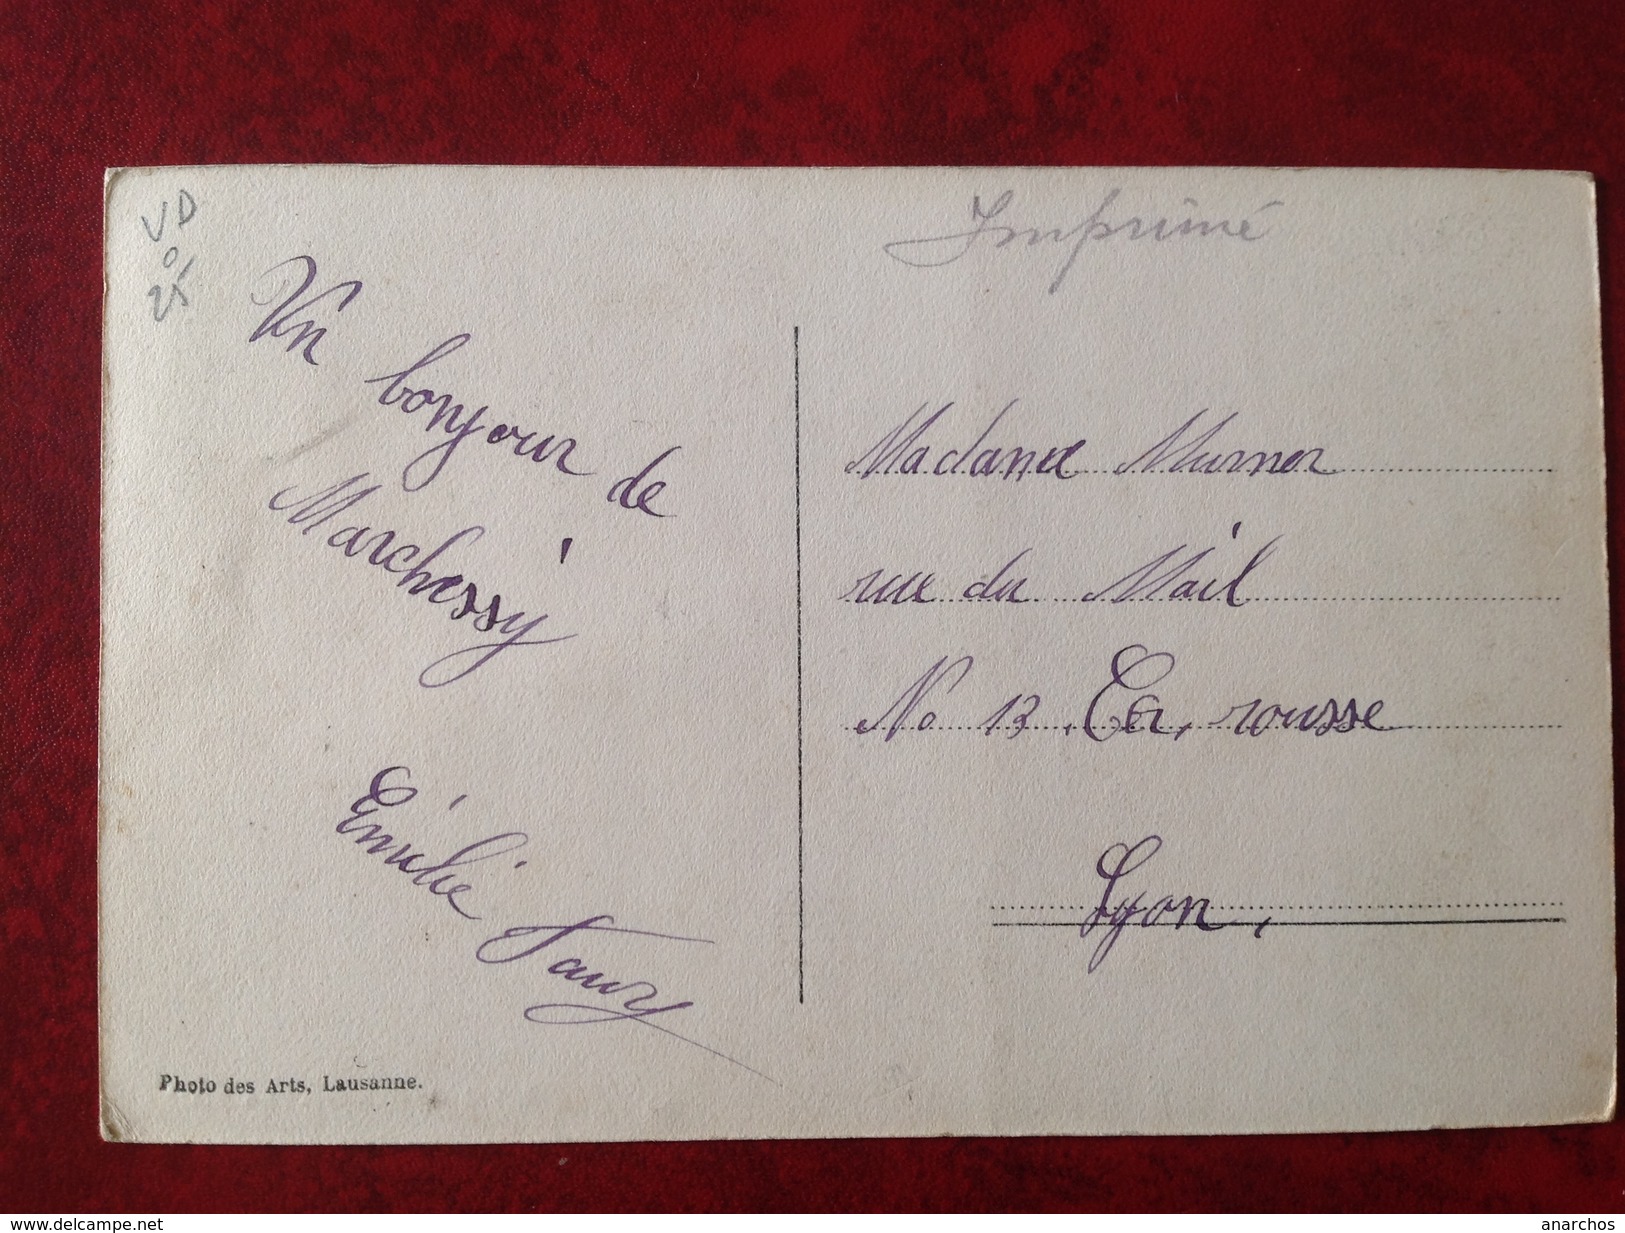 VD
Imprimé
Un bonjour de
Marchessy
Émilie
Photo des Arts, Lausanne.
Madame Murner
rue du Mail
No 13, rousse
Lyon,
www.delcampe.net
anarchos